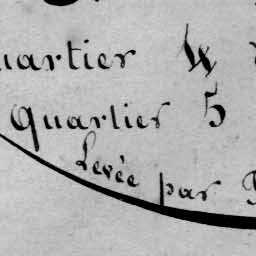 uartier W
quartier 5
Levée par